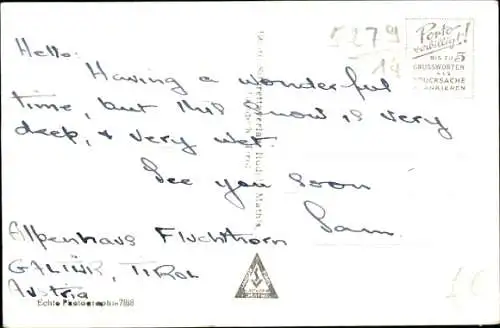 Hello,
Having a wonderful
time, but this snow is very
deep, & very wet
See you soon
Sam.
Alpenhaus Fluchthorn
GALTÜR, TIROL
Austria
Echte Photographie 7188
5279
14
Porto
verbilligt!
BIS ZU 5
GRUSSWORTEN
ALS
DRUCKSACHE
FRANKIEREN